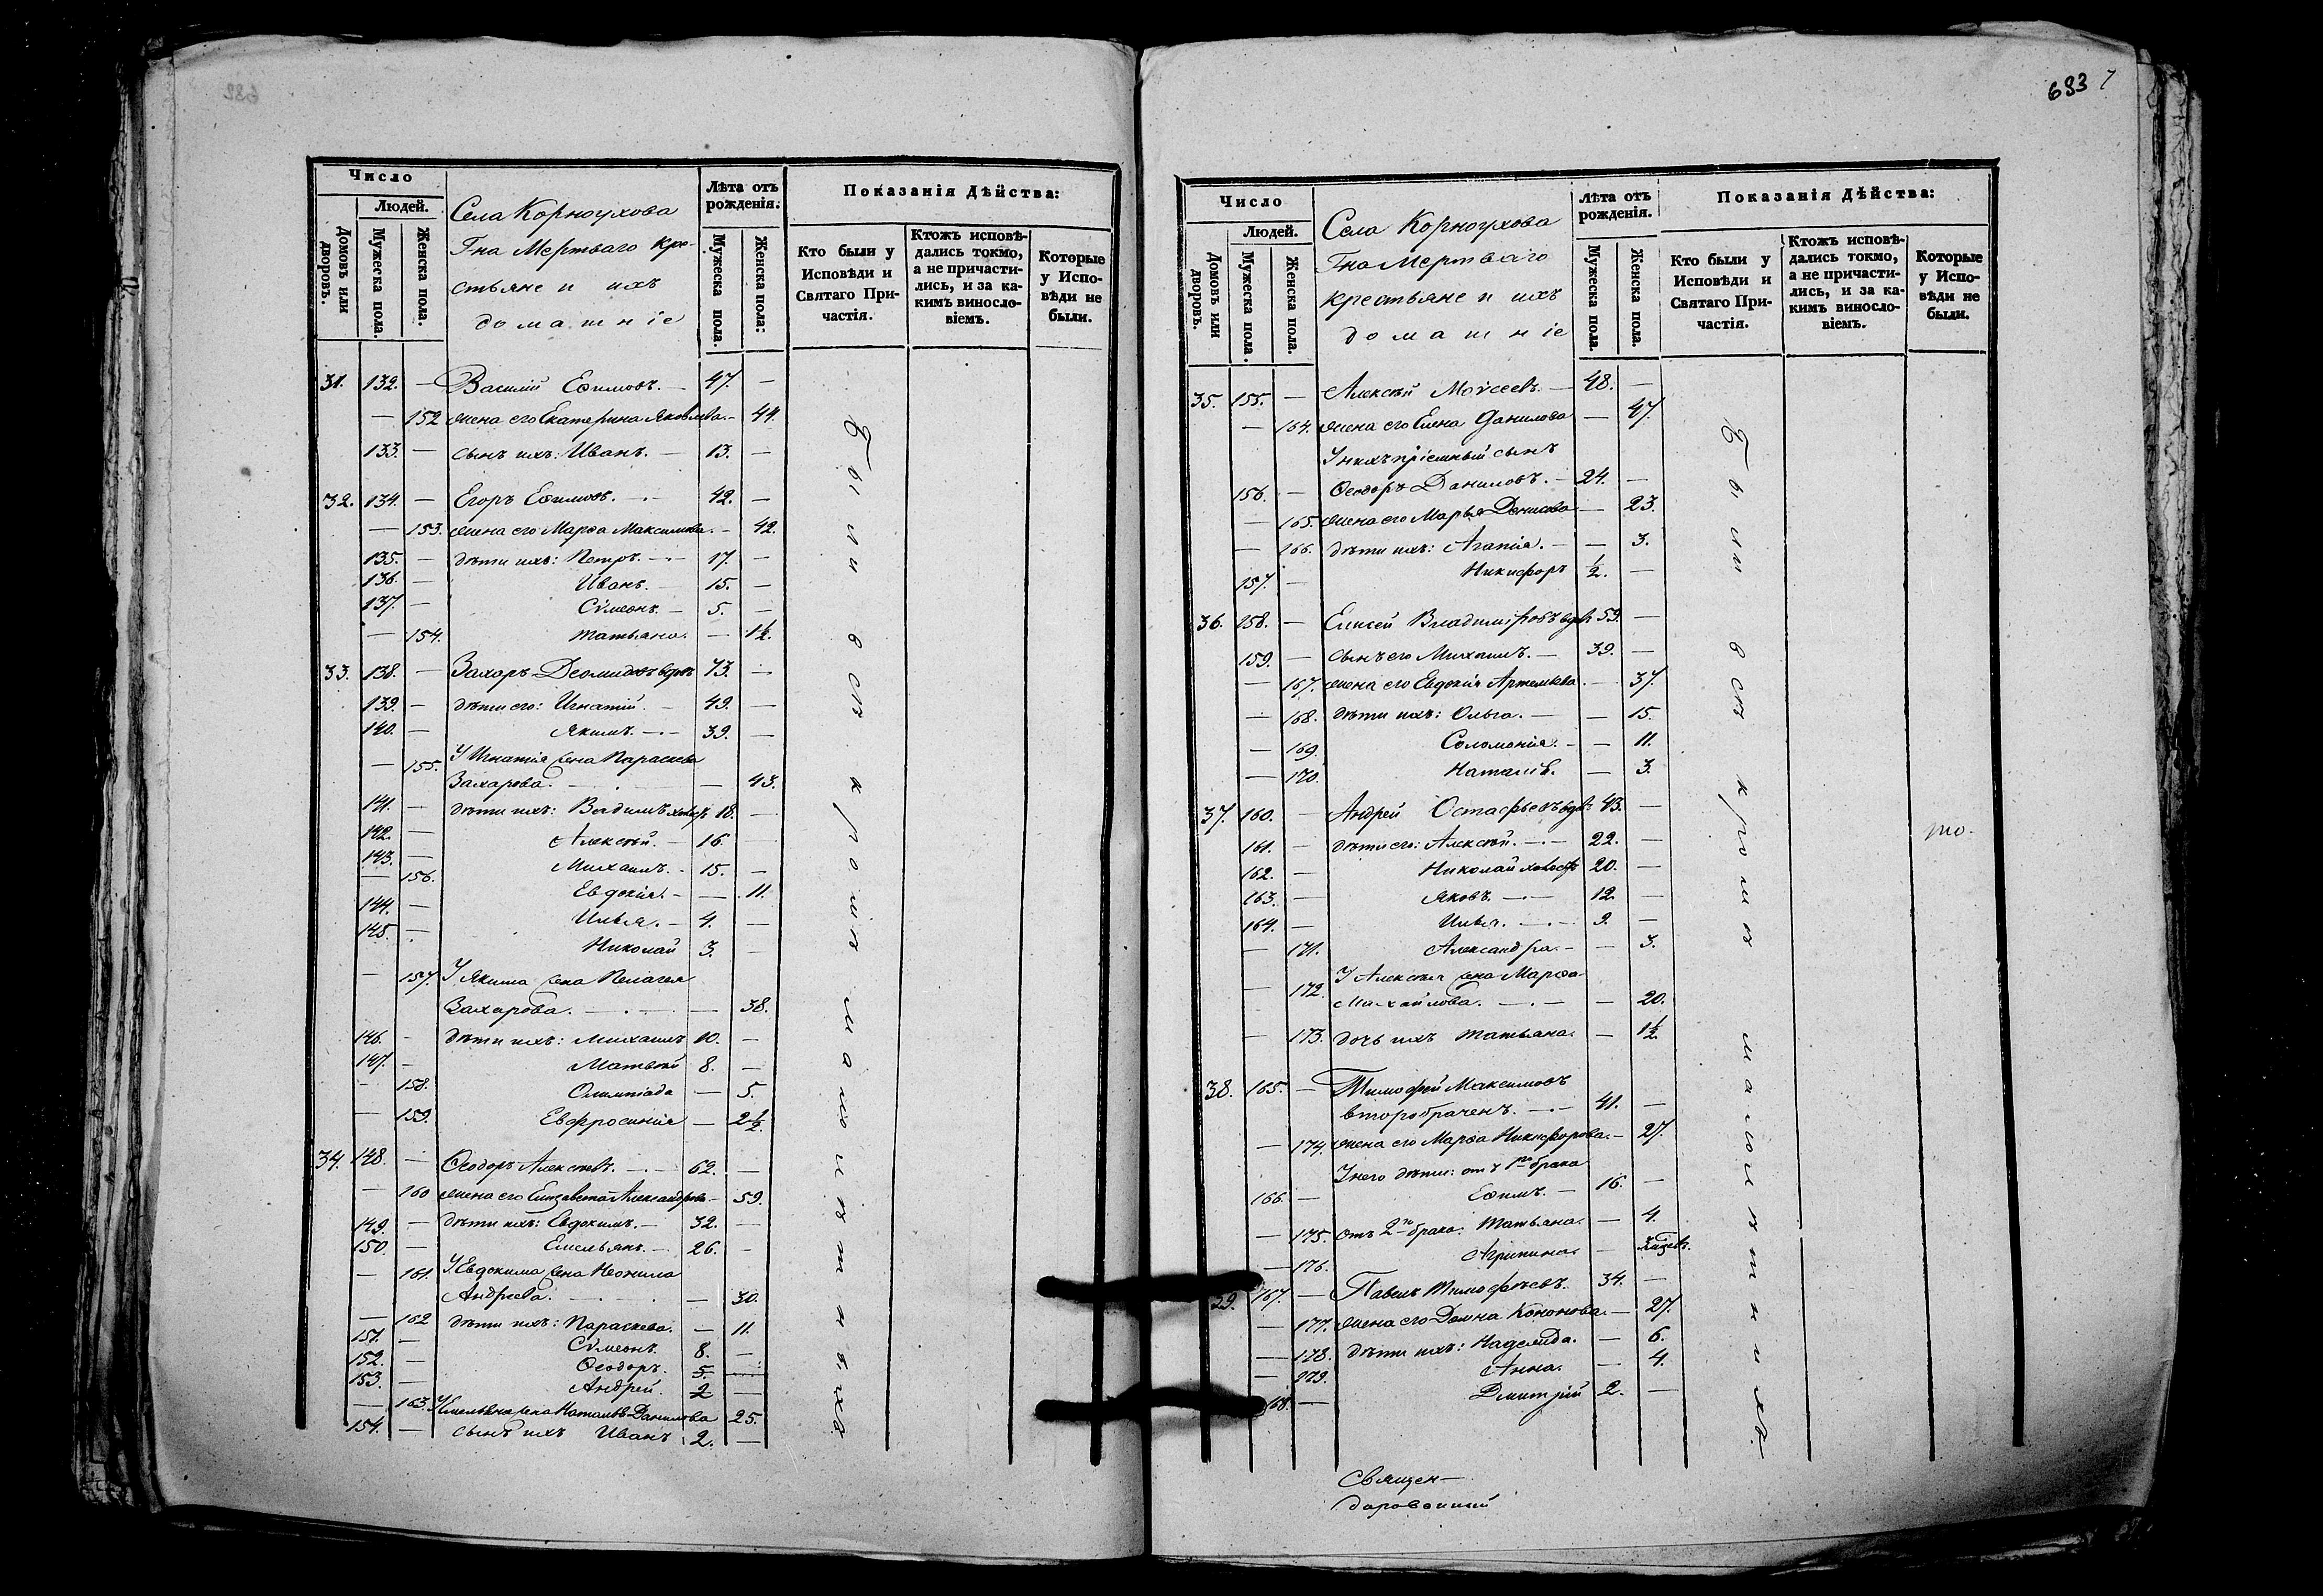 682
Число
Людей.
Домовъ или дворовъ.
Мужеска пола.
Женска пола.
Села Корноухова
Гна Мертваго кре-
стьяне и ихъ
домашніе
Лѣта отъ рожденія.
Мужеска пола.
Женска пола:
Показанія Дѣйства:
Кто были у Исповѣди и Святаго При-частія.
Ктожъ исповѣ-дались токмо, а не причасти-лись, и за ка-кимъ винослo-віемъ.
Которые у Испо-вѣди не были.
31. 132. — Василій Ефимовъ. — 47. —
— 152 жена его Екатерина Яковлева. — 44.
133. — сынъ ихъ: Иванъ. — 13. —
32. 134. — Егоръ Ефимовъ. — 42. —
— 153. жена его Марѳа Максимова. — 42.
135. — дѣти ихъ: Петръ. — 17. —
136. — Иванъ. — 15. —
137. — Сѵмеонъ. — 5. —
— 154. Татьяна. — 1½.
33. 138. — Захаръ Деомидовъ вдовъ 73. —
139. — дѣти его: Игнатій. — 49. —
140. — Якимъ. — 39. —
— 155. У Игнатія жена Параскева
Захарова. — 43.
141. — дѣти ихъ: Вадимъ холост 18. —
142. — Алексѣй. — 16. —
143. — Михаилъ. — 15. —
— 156. Евдокія. — 11.
144. — Илья. — 4. —
145. — Николай 3. —
— 157. У Якима жена Пелагея
Захарова. — 38.
146. — дѣти ихъ: Михаилъ 10. —
147. — Матвѣй 8. —
— 158. Олимпіада — 5.
— 159. Евфросинія — 2½.
34. 148. — Ѳеодоръ Алексѣевъ. — 62. —
— 160 жена его Елизавета Александрова — 59.
149. — дѣти ихъ: Евдокимъ. — 32. —
150. — Емельянъ. — 26. —
— 161. У Евдокима жена Неонила
Андреева. — 30.
— 162 дѣти ихъ: Параскева. — 11.
151. — Сѵмеонъ. 8. —
152. — Ѳеодоръ. 5. —
153. — Андрей. 2 —
— 163. У Емельяна жена Наталья Данилова 25.
154. — сынъ ихъ Иванъ 2. —
Были всѣ кромѣ малолѣтнихъ.
693 7
Число
Людей.
Домовъ или дворовъ.
Мужеска пола.
Женска пола.
Села Корноухова
Гна Мертваго
крестьяне и ихъ
домашніе
Лѣта отъ рожденія.
Мужеска пола.
Женска пола.
Показанія Дѣйства:
Кто были у Исповѣди и Святаго При-частія.
Ктожъ исповѣ-дались токмо, а не причасти-лись, и за ка-кимъ винослo-віемъ.
Которые у Испо-вѣди не были.
35. 155. — Алексѣй Моѵсеевъ. — 48. —
— 164. жена его Елена Данилова — 47.
У нихъ пріемный сынъ
156. — Ѳеодоръ Даниловъ. — 24. —
— 165. жена его Марья Денисова — 23.
— 166. дѣти ихъ: Агапія. — 3.
157. — Никифоръ ½. —
36. 158. — Елисей Владиміровъ вдовъ 59. —
159. — сынъ его Михаилъ. — 39. —
— 167. жена его Евдокія Артемьева. — 37.
— 168. дѣти ихъ: Ольга. — 15.
— 169. Соломонія. — 11.
— 170. Наталія. — 3.
37. 160. — Андрей Остафьевъ вдовъ 43. —
161. — дѣти его: Алексѣй. — 22. —
162. — Николай холостъ 20. —
163. — Яковъ. — 12. —
164. — Илья. — 9. —
— 171. Александра. — 3.
— 172. У Алексѣя жена Марѳа
Михайлова. — 20.
— 173. дочь ихъ Татьяна. — 1½
38. 165. — Тимофей Максимовъ
второбраченъ. — 41. —
— 174. жена его Марѳа Никифорова. — 27.
У него дѣти: отъ 1го брака
166. — Ефимъ. — 16. —
— 175. отъ 2го брака: Татьяна. — 4.
— 176. Агрипина —
39. 167. — Павелъ Тимофѣевъ. 34. —
— 177. жена его Домна Кононова. — 27.
— 178. дѣти ихъ: Надежда. — 6.
— 179. Анна. — 4.
168. — Дмитрій 2. —
Были всѣ кромѣ малолѣтнихъ.
то-
Священ-